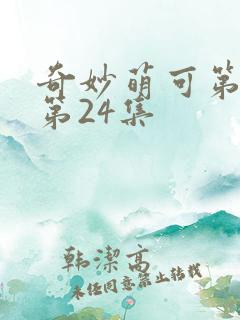 奇妙萌可第
第24集
韩潔高
未经同意禁止转载